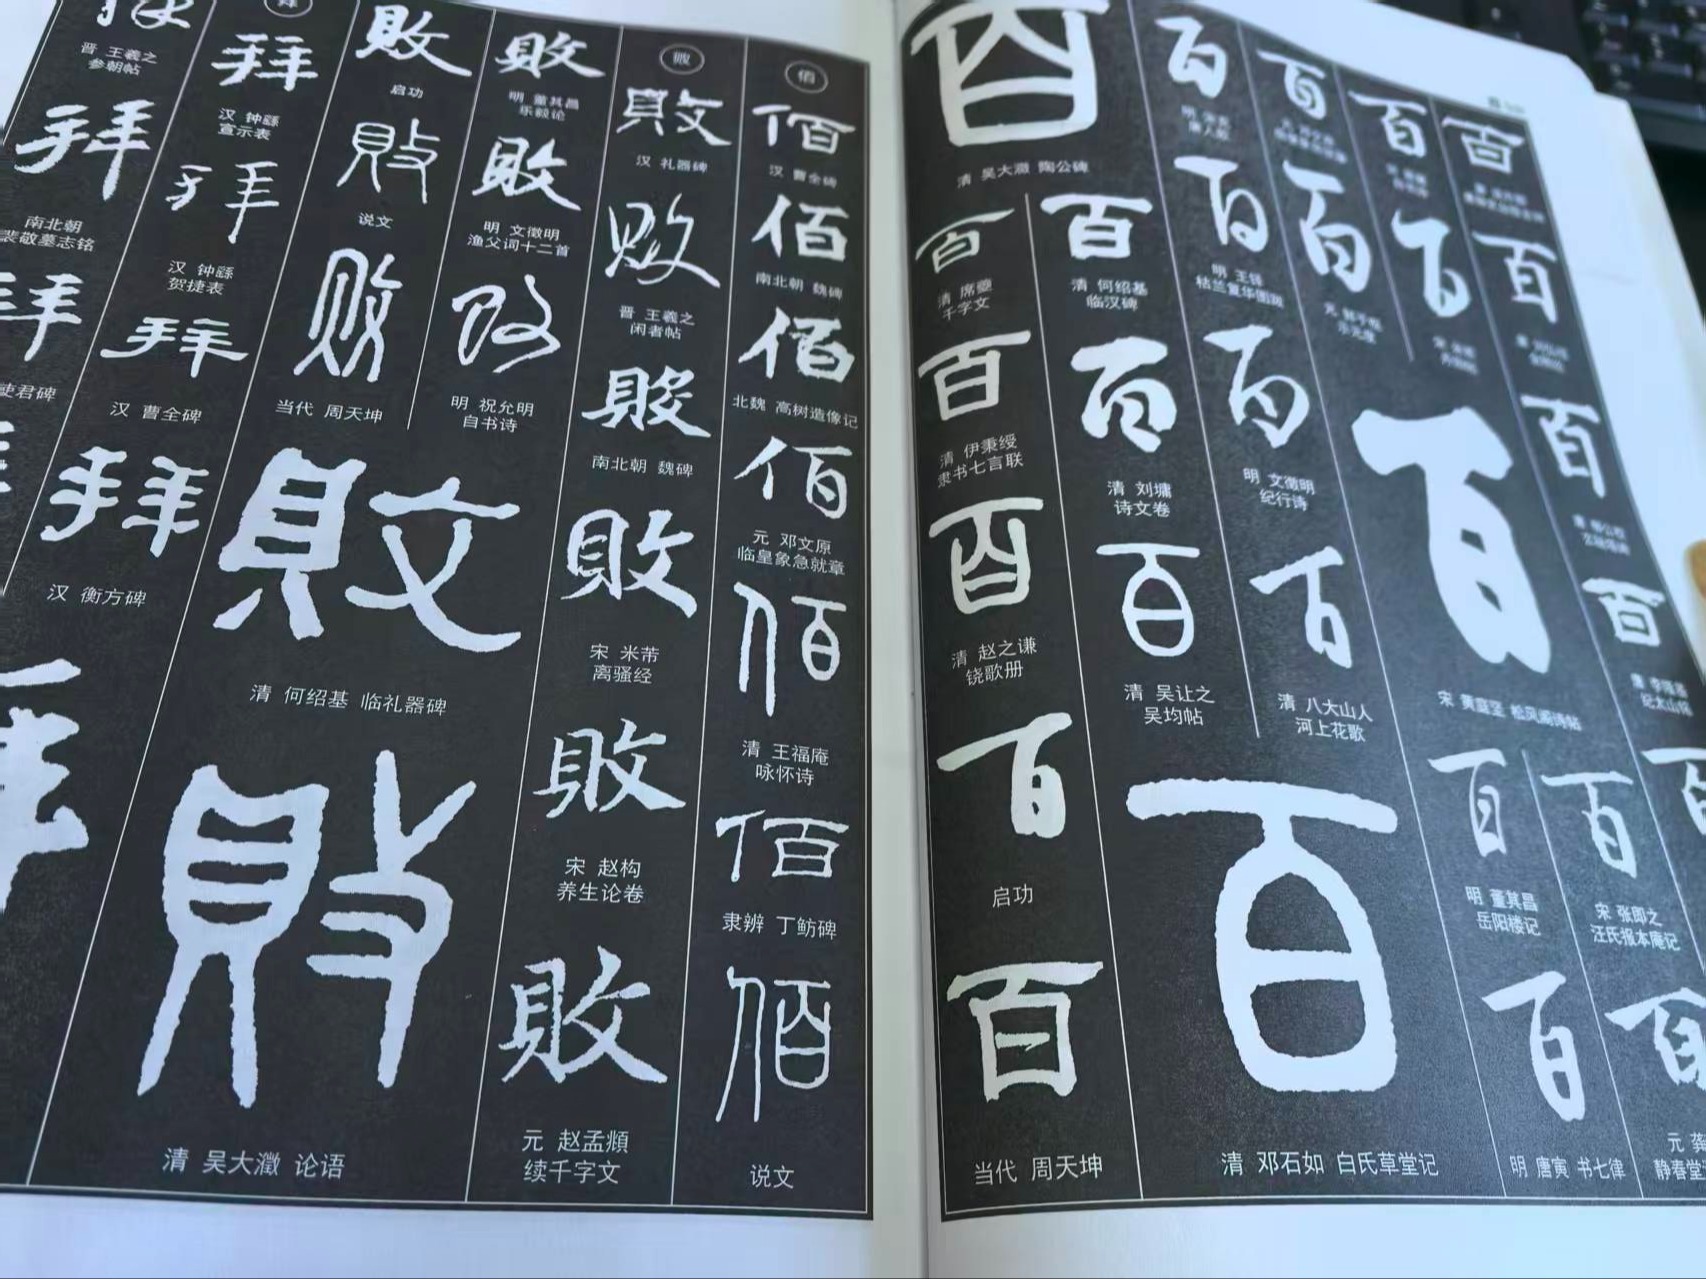 佰
佰
汉 曹全碑
佰
南北朝 魏碑
佰
北魏 高树造像记
佰
元 邓文原
临皇象急就章
佰
清 王福庵
咏怀诗
佰
隶辨 丁鲂碑
佰
说文
败
敗
汉 礼器碑
敗
晋 王羲之
闲者帖
敗
南北朝 魏碑
敗
宋 米芾
离骚经
敗
宋 赵构
养生论卷
敗
元 赵孟頫
续千字文
敗
明 董其昌
乐毅论
敗
明 文徵明
渔父词十二首
敗
明 祝允明
自书诗
敗
启功
敗
说文
敗
当代 周天坤
敗
清 何绍基 临礼器碑
敗
清 吴大澂 论语
拜
汉 钟繇
宣示表
拜
汉 钟繇
贺捷表
拜
汉 曹全碑
拜
汉 衡方碑
晋 王羲之
参朝帖
拜
南北朝
裴敬墓志铭
拜
使君碑
百
百
百
百
百
百
百
百
百
百
宋 黄庭坚 松风阁诗帖
百
宋 张即之
汪氏报本庵记
百
元 龚
静春堂
百
百
明 王铎
枯兰复华图跋
百
明 文徵明
纪行诗
百
清 八大山人
河上花歌
百
明 董其昌
岳阳楼记
百
明 唐寅 书七律
百
清 吴大澂 陶公碑
百
清 何绍基
临汉碑
百
清 刘墉
诗文卷
百
清 吴让之
吴均帖
百
清 邓石如 白氏草堂记
百
清 席夔
千字文
百
清 伊秉绶
隶书七言联
百
清 赵之谦
铙歌册
百
启功
百
当代 周天坤